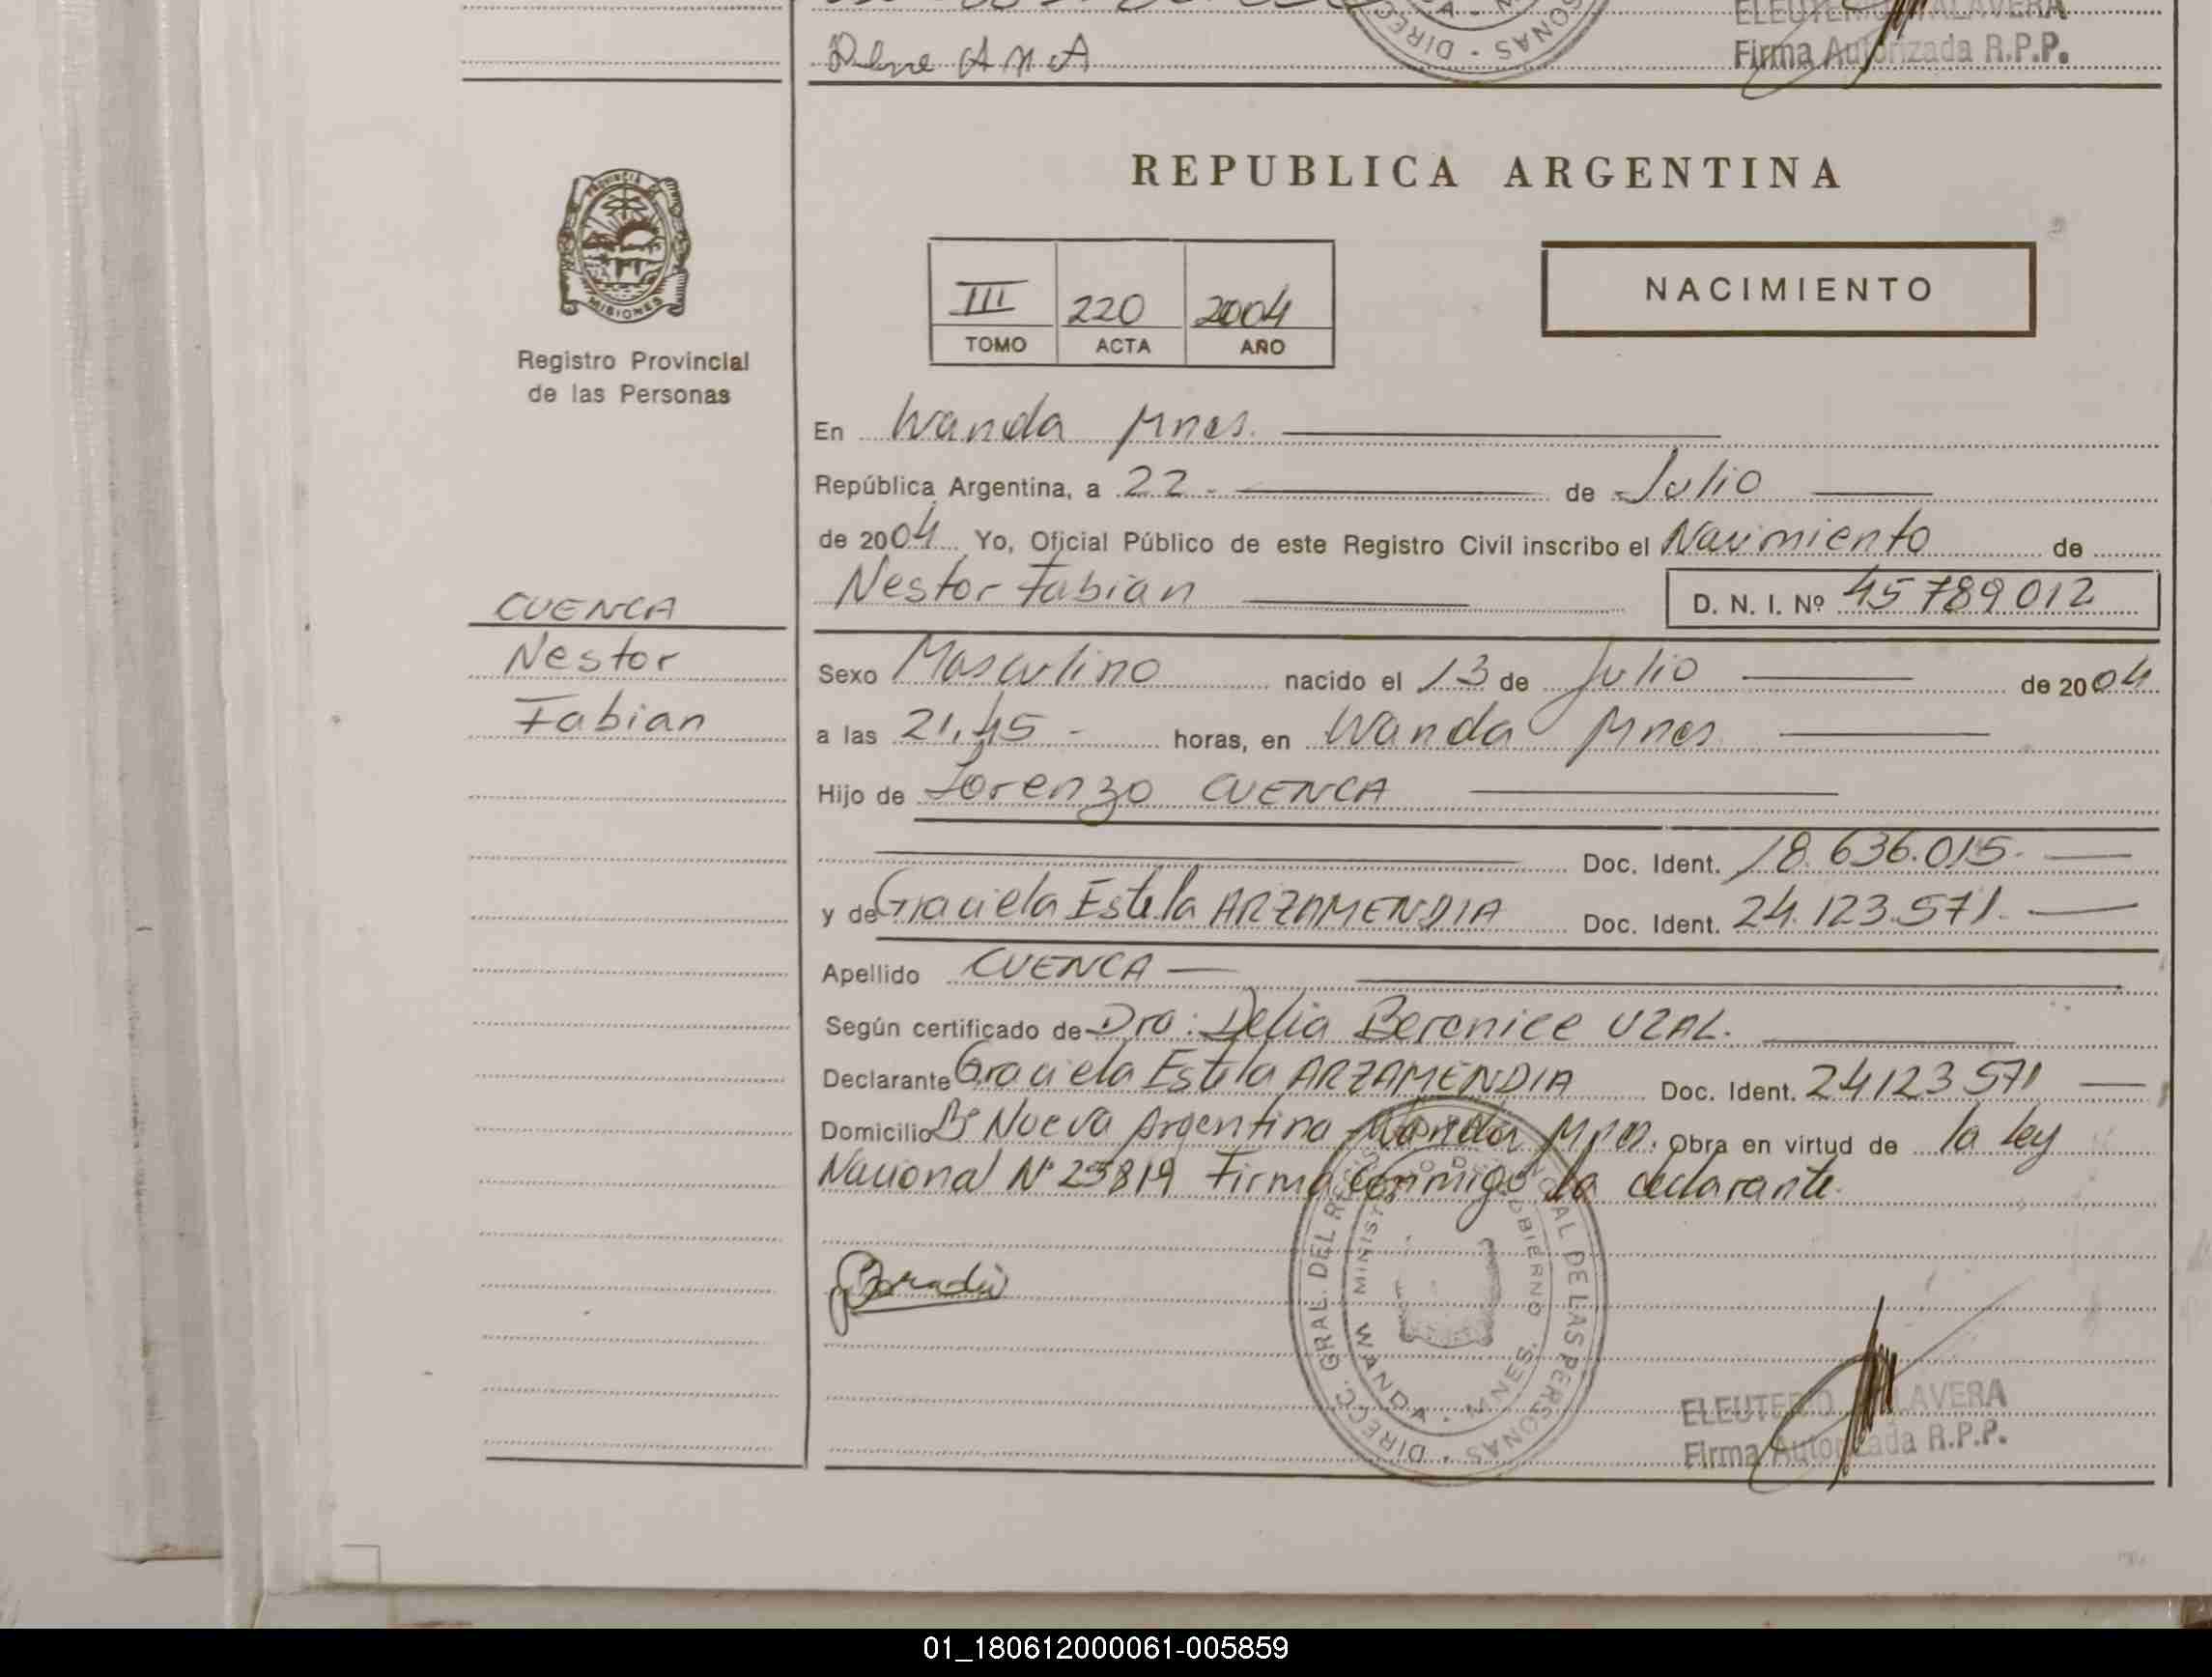 ANA
ELEUTERIO TALAVERA
Firma Autorizada R.P.P.
DIRECC
PROVINCIA DE
MISIONES
Registro Provincial
de las Personas
REPUBLICA ARGENTINA
III 220 2004
TOMO ACTA AÑO
NACIMIENTO
En Wanda Mnes.
República Argentina, a 22 - de Julio
de 2004 Yo, Oficial Público de este Registro Civil inscribo el Nacimiento de
Nestor Fabian D. N. I. Nº 45789012
CUENCA
Nestor
Fabian
Sexo Masculino nacido el 13 de Julio de 2004
a las 21,45 - horas, en Wanda Mnes
Hijo de Lorenzo CUENCA
Doc. Ident. 18.636.015.
y de Graciela Estela ARZAMENDIA Doc. Ident. 24.123.571.
Apellido CUENCA
Según certificado de Dra: Delia Berenice UZAL.
Declarante Graciela Estela ARZAMENDIA Doc. Ident. 24123571
Domicilio Bº Nueva Argentina Wanda Mnes. Obra en virtud de la ley
Nacional Nº 25819 Firma conmigo la declarante.
DIRECC. GRAL. DEL REG. PROVINCIAL DE LAS PERSONAS
MINISTERIO DE GOBIERNO
WANDA - MNES.
ELEUTERIO TALAVERA
Firma Autorizada R.P.P.
01_180612000061-005859